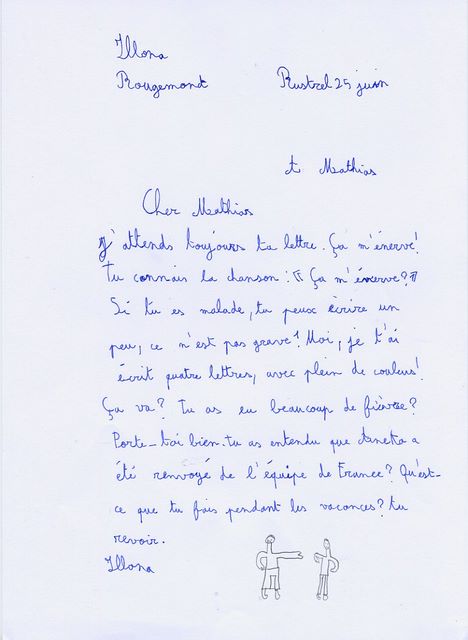 Illona
Rougemond Rustrel 25 juin
A Mathias
Cher Mathias
J'attends toujours ta lettre. Ça m'énerve!
Tu connais la chanson: "Ça m'énerve?"
Si tu es malade, tu peux écrire un
peu, ce n'est pas grave! Moi, je t'ai
écrit quatre lettres, avec plein de couleurs!
Ça va? Tu as eu beaucoup de fièvre?
Porte-toi bien. tu as entendu que Aneka a
été renvoyé de l'équipe de France? Qu'est-
ce que tu fais pendant les vacances? tu
revoir.
Illona